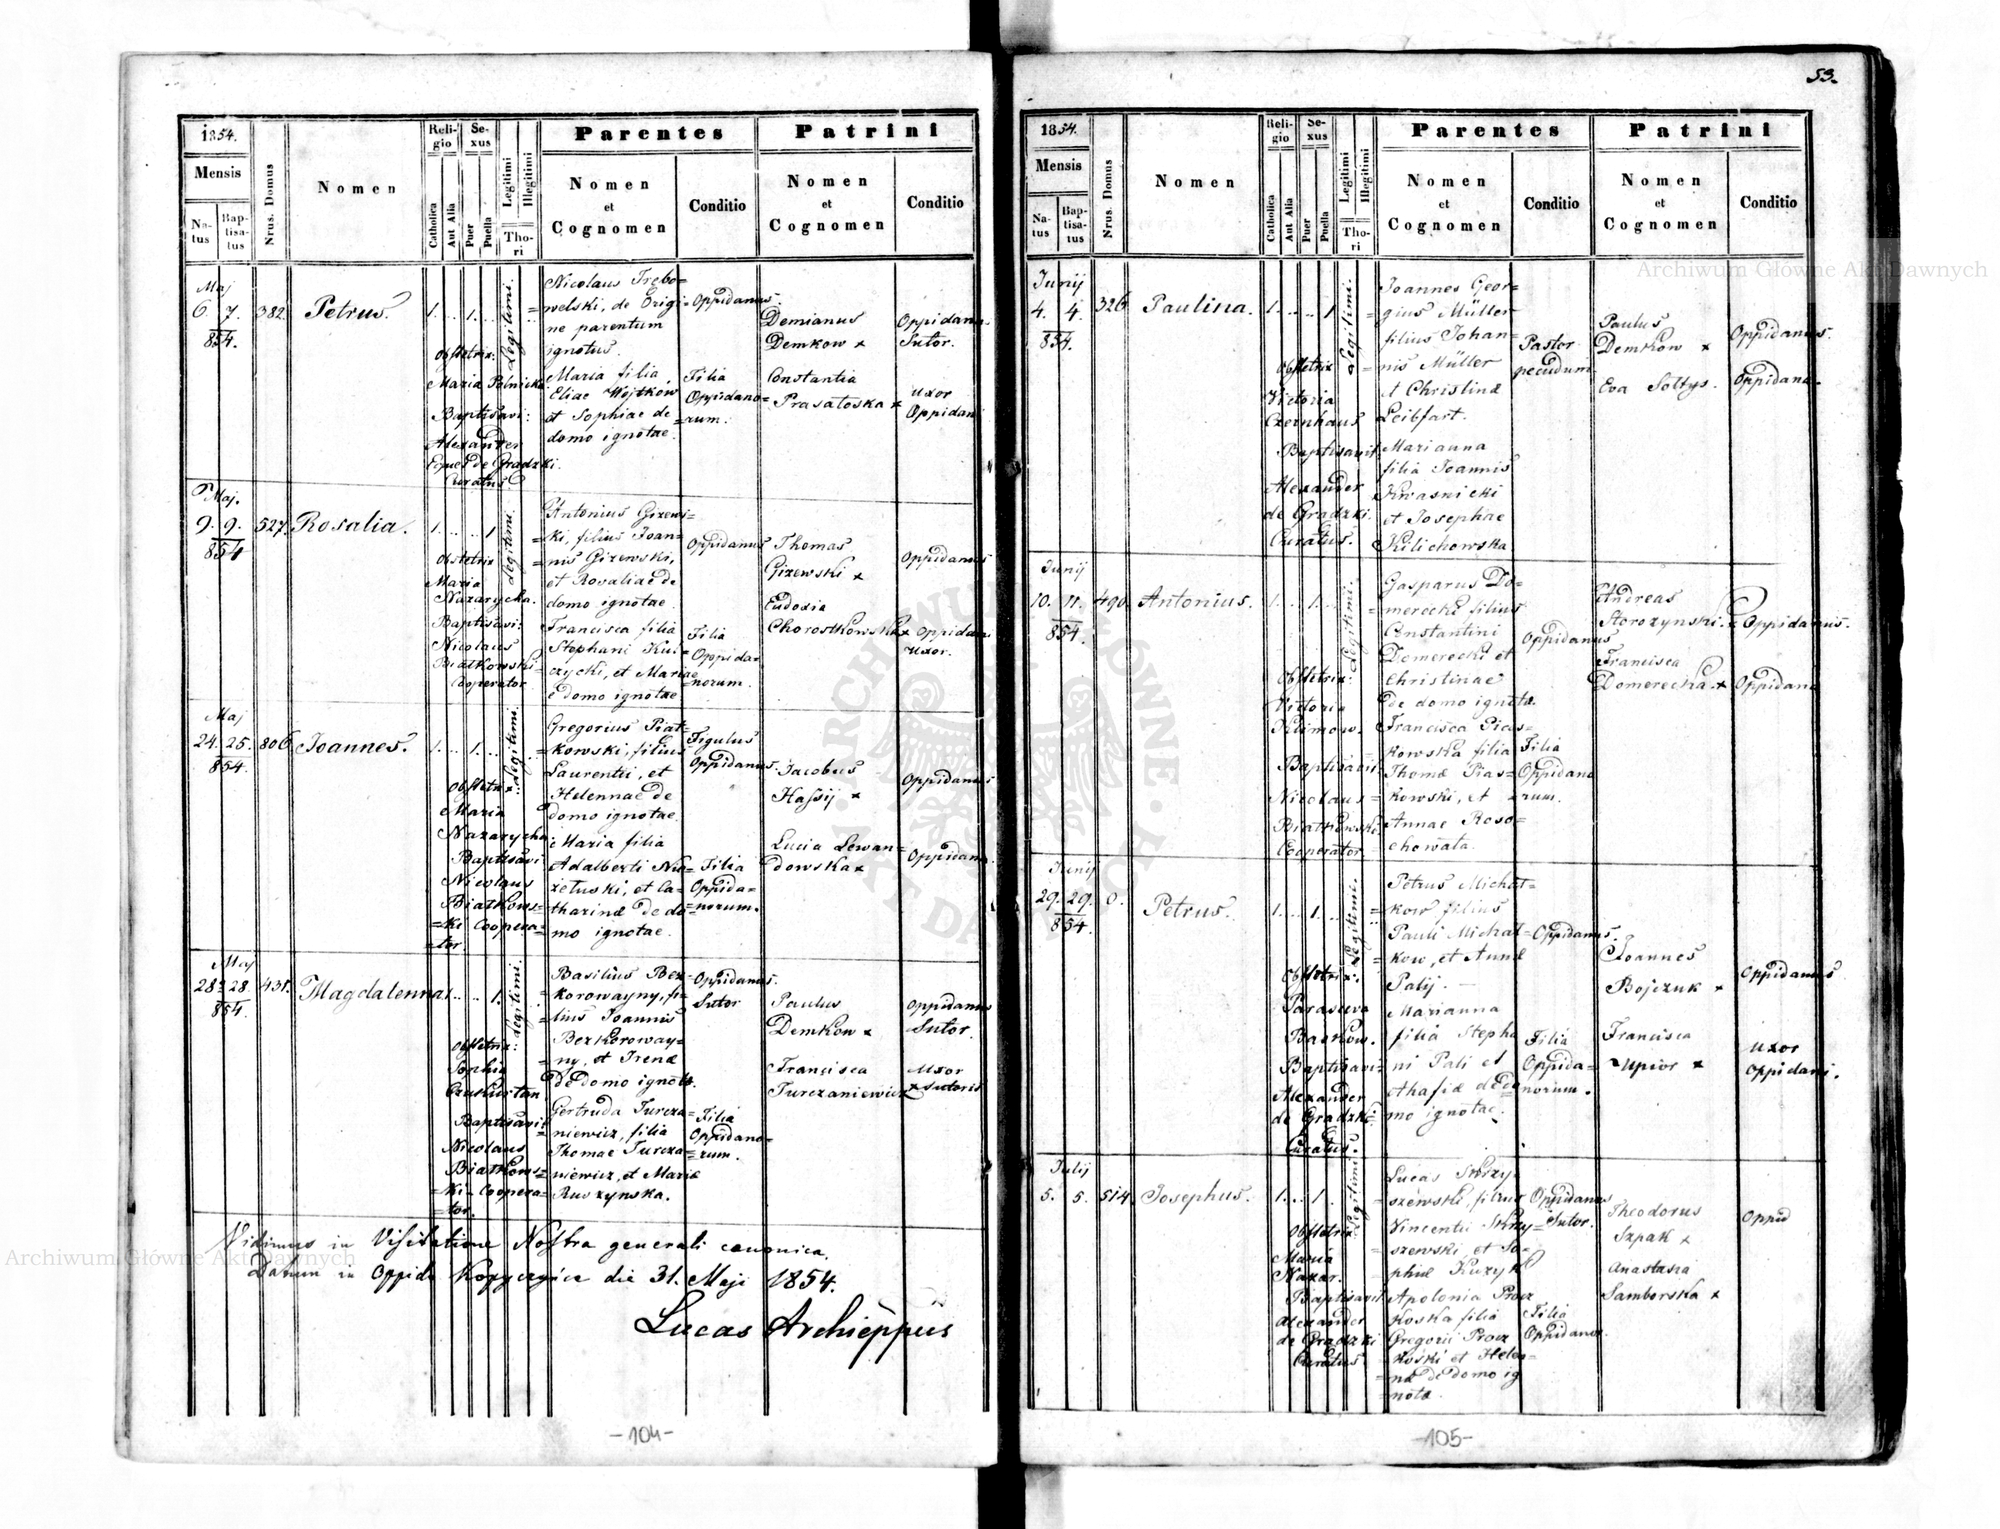 1854.
Mensis
Na-
tus
Bap-
tisa-
tus
Nrus. Domus
Nomen
Reli-
gio
Catholica
Aut Alia
Se-
xus
Puer
Puella
Legitimi
Illegitimi
Tho-
ri
Parentes
Nomen
et
Cognomen
Conditio
Patrini
Nomen
et
Cognomen
Conditio
Maj
6. 7. 382. Petrus. 1. .. 1. .. Legitimi.
854.
Obstetrix:
Maria Polnicka
Baptisavi:
Alexander
Eques de Gradzki.
Curatus.
Nicolaus Trebo-
welski, de Origi=
ne parentum
ignotus.
Maria filia
Eliae Wojtkow
et Sophiae de
domo ignotae.
Oppidanus.
Filia
Oppidano=
=rum.
Demianus
Demkow x
Constantia
Prasatoska x
Oppidanus.
Sutor.
uxor
Oppidani
Maj.
9. 9. 527. Rosalia. 1. .. .. 1 Legitimi.
854
Obstetrix
Maria
Nazarycka.
Baptisavi:
Nicolaus
Białkowski
Cooperator
Antonius Gizews=
ki, filius Joan=
nis Gizewski,
et Rosaliae de
domo ignotae.
Francisca filia
Stephani Ku=
czycki, et Mariae
e domo ignotae
Oppidanus
Filia
Oppida=
=norum.
Thomas
Gizewski x
Eudoxia
Chorostkowska x
Oppidanus
Oppidani
uxor.
Maj
24. 25. 806. Joannes. 1. .. 1. .. Legitimi.
854.
Obstetrix:
Maria
Nazarycha
Baptisavi
Nicolaus
Białkows=
=ki Coopera=
=tor.
Gregorius Piat=
=kowski, filius
Laurentii, et
Helennae de
domo ignotae.
Maria filia
Adalberti Nie=
zetuski, et Ca=
tharinae de do=
mo ignotae.
Figulus
Oppidanus.
Filia
Oppida=
=norum.
Jacobus
Hassij x
Lucia Lewan=
dowska x
Oppidanus
Oppidana.
Maj
28. 28. 431. Magdalenna 1. .. .. 1. Legitimi.
854.
Obstetrix:
Sophia
Czukiisztan
Baptisavit
Nicolaus
Białkows=
=ki Coopera=
=tor.
Basilius Bez=
korowayny, fi=
lius Joannis
Bezkoroway=
=ny, et Irenae
De domo ignota.
Gertruda Turcza=
niewicz, filia
Thomae Turcza=
niewicz, et Mariae
Ruszynska.
Oppidanus.
Sutor
Filia
Oppidano=
=rum.
Paulus
Demkow x
Francisca
Turczaniewicz
Oppidanus
Sutor.
uxor
x Sutoris
Vidimus in Visitatione Nostra generali canonica.
Datum in Oppido Kopyczyńce die 31. Maji 1854.
Lucas Archieppus
-104-
53.
1854.
Mensis
Na-
tus
Bap-
tisa-
tus
Nrus. Domus
Nomen
Reli-
gio
Catholica
Aut Alia
Se-
xus
Puer
Puella
Legitimi
Illegitimi
Tho-
ri
Parentes
Nomen
et
Cognomen
Conditio
Patrini
Nomen
et
Cognomen
Conditio
Junij
4. 4. 326. Paulina. 1. .. .. 1 Legitimi.
854.
Obstetrix
Victoria
Czernhaus
Baptisavit
Alexander
de Gradzki.
Curatus.
Joannes Geor=
gius Müller
filius Johan=
nis Müller
et Christinae
Leibfart.
Marianna
filia Joannis
Kwasnicki
et Josephae
Kilichowska
Pastor
pecudum
Paulus
Demkow x
Eva Sołtys.
Oppidanus.
Oppidana.
Junij
10. 11. 490. Antonius. 1. .. 1. Legitimi.
854.
Obstetrix:
Victoria
Klimow.
Baptisavit
Nicolaus
Białkowski
Cooperator
Gasparus Do=
merecki filius
Constantini
Domerecki et
Christinae
de domo ignota.
Francisca Pias=
kowska filia
Thomae Pias=
kowski, et
Annae Roso=
chowata.
Oppidanus
Filia
Oppidano
=rum.
Andreas
Storozynski. x
Francisca
Domerecka x
Oppidanus.
Oppidana
Junij
29. 29. 0. Petrus. 1. .. 1. Legitimi.
854.
Obstetrix:
Parasceva
Baskow.
Baptisavi
Alexander
de Gradzki.
Curatus.
Petrus Michał=
kow filius
Pauli Michał=
kow, et Annae
Palij.
Marianna
filia Stepha
ni Pali et
Ahafiae de do
mo ignotae.
Oppidanus.
Filia
Oppida=
norum.
Joannes
Bojczuk x
Francisca
Upior x
Oppidanus
Uxor
Oppidani.
Julij
5. 5. 514. Josephus. 1. .. 1. Legitimi
Obstetrix
Maria
Nazar.
Baptisavit
Alexander
de Gradzki
Curatus
Lucas Skrzy=
szewski, filius
Vincentii Skrzy=
szewski, et So=
phiae Kuzyk
Apolonia Procz
koska filia
Gregorii Procz
koski et Hele=
nae de domo ig
nota.
Oppidanus
Sutor.
Filia
Oppidanor.
Theodorus
Szpak x
Anastasia
Samborska x
Oppid
-105-
Archiwum Główne Akt Dawnych
Archiwum Główne Akt Dawnych
ARCHIWUM GŁÓWNE AKT DAWNYCH